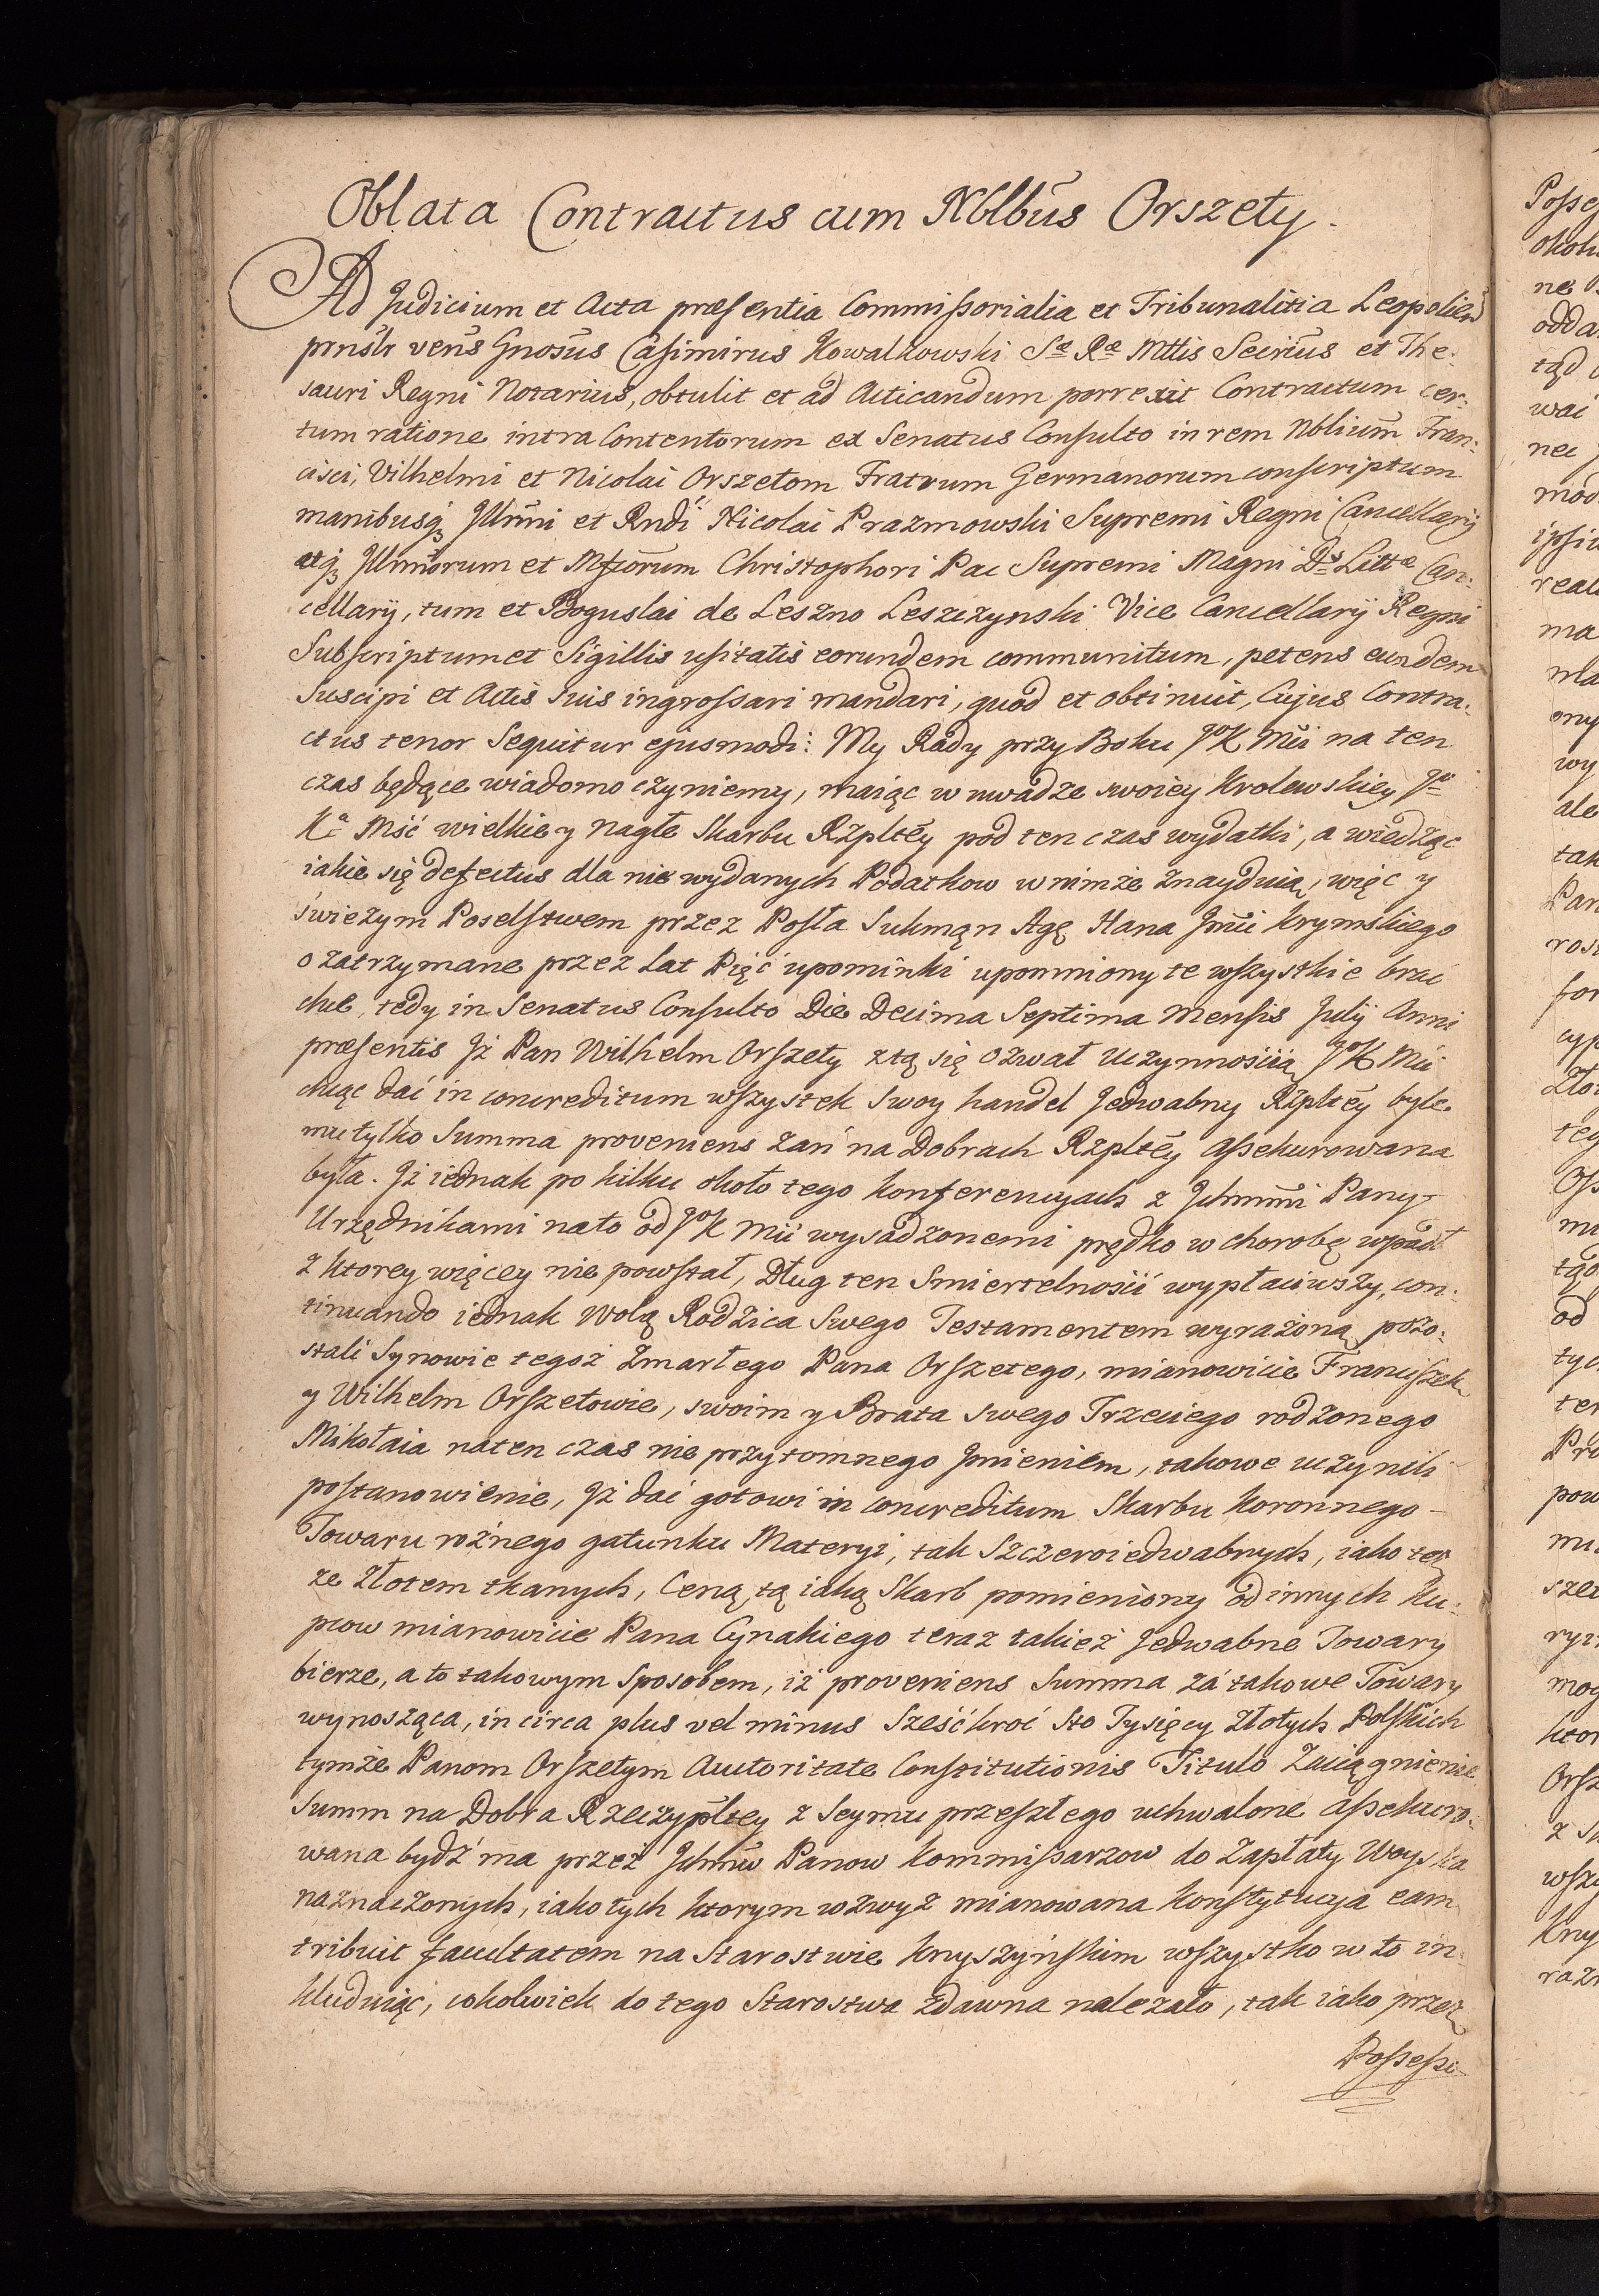 Oblata Contractus cum Nblbus Orszety.
Ad Judicium et Acta præsentia Commissorialia et Tribunalitia Leopolien
prnstr vens Gnosus Casimirus Kowalkowski Sæ Ræ Mttis Secrius et The-
sauri Regni Notarius, obtulit et ad Acticandum porrexit Contractum cer-
tum ratione intra Contentorum ex Senatus Consulto in rem Nblium Fran-
cisci, Vilhelmi et Nicolai Orszetom Fratrum Germanorum conscriptum
manibusq Illrmi et Rndi Nicolai Prazmowski Supremi Regni Cancellarij
atq Illrmorum et Mfcorum Christophori Pac Supremi Magni Ds Littæ Can-
cellarij, tum et Boguslai de Leszno Leszczynski Vice Cancellarij Regni
Subscriptum et Sigillis usitatis eorundem communitum, petens eundem
Suscipi et Actis suis ingrossari mandari, quod et obtinuit, Cujus Contra-
ctus tenor Sequitur ejusmodi: My Rady przy Boku JoK Mci na ten
czas będące wiadomo czyniemy, maiąc w uwadze swoiey Krolewskiey Jo
Ka Mść wielkie y nagłe Skarbu Rzpltey pod ten czas wydatki, a wiedząc
iakie się defectus dla nie wydanych Podatkow w nimże znayduią, więc y
świeżym Poselstwem przez Posła Sulmąn Agę Hana Jmci Krymskiego
o zatrzymane przez Lat Pięć upominki upomniony te wszystkie brac
chce, tedy in Senatus Consulto Die Decima Septima Mensis Julij Anni
præsentis Jż Pan Wilhelm Orszety z tą się ozwał Uczynnoscią JoK Mci
chcąc dać in concreditum wszystek Swoy handel Jedwabny Rzpltey byle
mu tylko Summa proveniens zań na Dobrach Rzpltey Assekurowana
była. Jż iednak po kilku około tego konferencyach z Jchmmi Pany
Urzędnikami na to od JoK Mci wysadzonemi prędko w chorobę wpadł
z ktorey więcey nie powstał, Dług ten Smiertelności wypłaciwszy, con-
tinuando iednak Wolą Rodzica Swego Testamentem wyrażoną pozo-
stali Synowie tegoż Zmarłego Pana Orszetego, mianowicie Franciszek
y Wilhelm Orszetowie, swoim y Brata swego Trzeciego rodzonego
Mikołaia na ten czas nie przytomnego Jmieniem, takowe uczynili
postanowienie, Jż dać gotowi in concreditum Skarbu Koronnego
Towaru rożnego gatunku Materyi, tak Szczeroiedwabnych, iako też
ze Złotem tkanych, Ceną tą iaką Skarb pomieniony od innych Ku-
pcow mianowicie Pana Cynakiego teraz takież Jedwabne Towary
bierze, a to takowym Sposobem, iż proveniens Summa zá takowe Towary
wynosząca, in circa plus vel minus Sześćkroć Sto Tysięcy Złotych Polskich
tymże Panom Orszetym Auctoritate Constitutionis Titulo Zaciągnienie
Summ na Dobra Rzeczypltey z Seymu przeszłego uchwalone assekuro-
wana bydź ma przez Jchmw Panow Kommissarzow do Zapłaty Woyska
naznaczonych, iako tych ktorym wzwyż mianowana Konstytucya eam
tribuit facultatem na Starostwie Knyszyńskim wszystko w to in-
kluduiąc, cokolwiek do tego Starostwa zdawna należało, tak iako przez
Possessi-